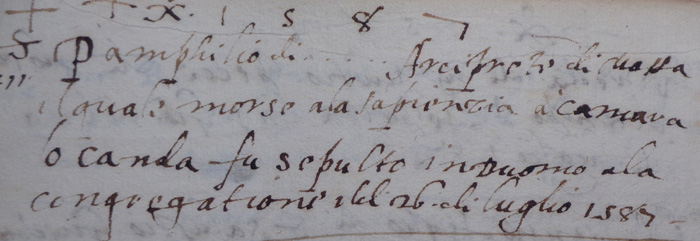 X. 1 5 8 7
Pamphilio di ...... Arciprete di
il quale morse ala sapienzia a camara
locanda fu sepulto in Duomo ala
congregatione il dì 26 di luglio 1587